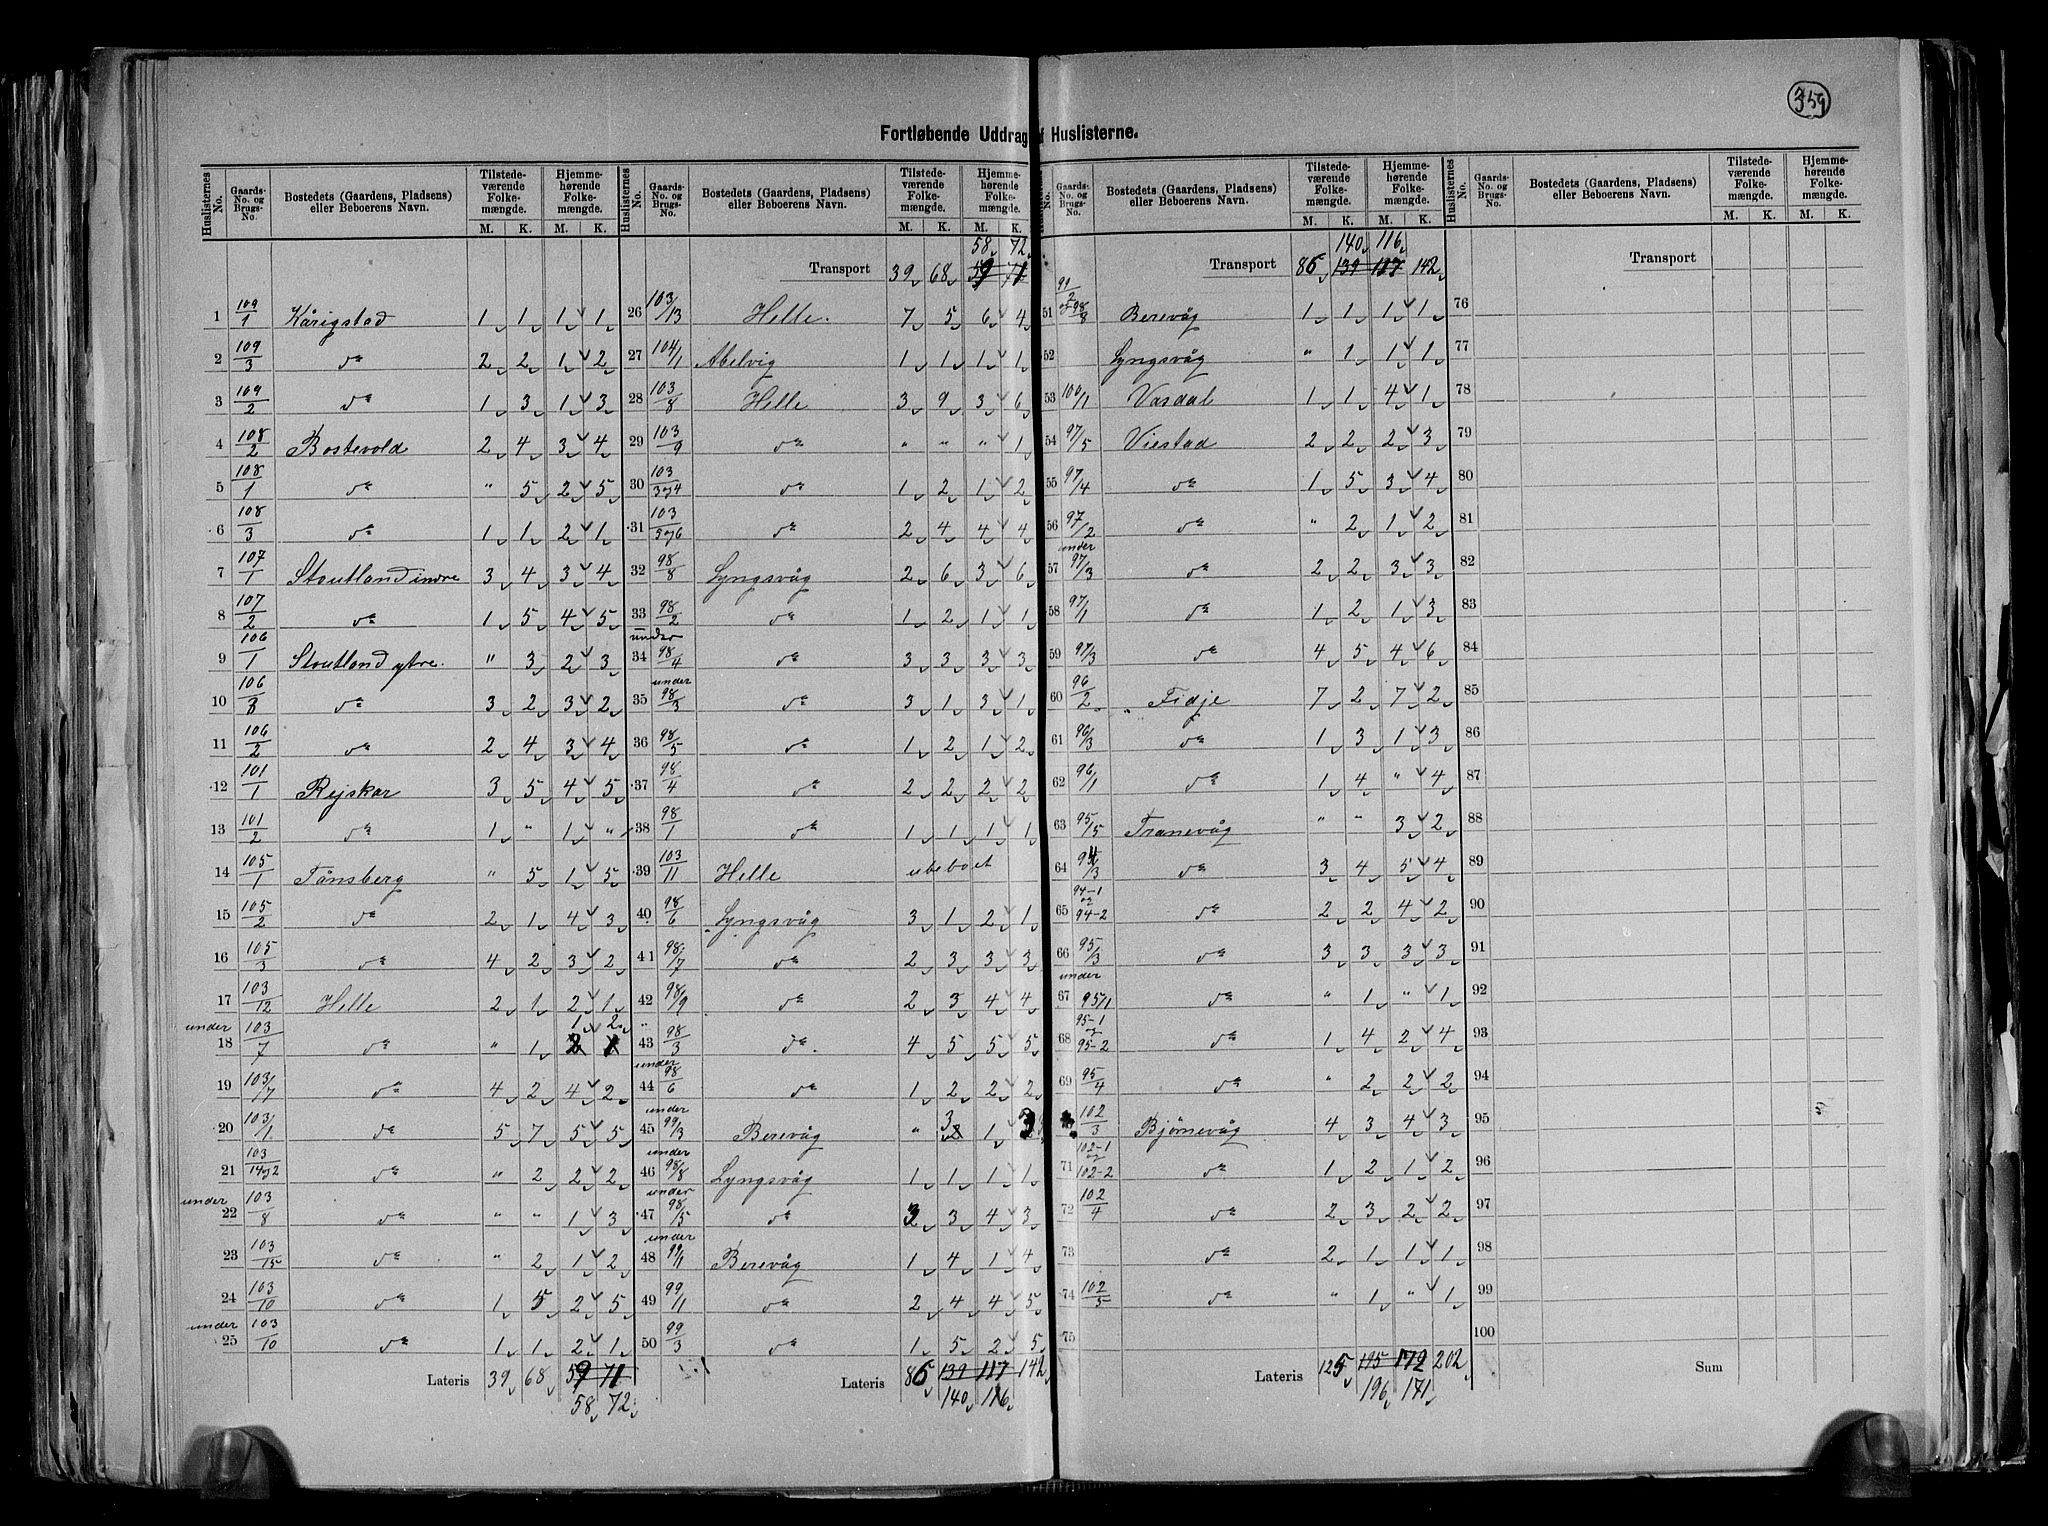 359
Fortløbende Uddrag af Huslisterne.
Huslisternes No. | Gaards-No. og Brugs-No. | Bostedets (Gaardens, Pladsens) eller Beboerens Navn. | Tilstedeværende Folkemængde. M. K. | Hjemmehørende Folkemængde. M. K.
1 109/1 Kårigstad 1 1 1 1
2 109/3 do 2 2 1 2
3 109/2 do 1 3 1 3
4 108/2 Bostevold 2 4 3 4
5 108/1 do " 5 2 5
6 108/3 do 1 1 2 1
7 107/1 Stoutland indre 3 4 3 4
8 107/2 do 1 5 4 5
9 106/1 Stoutland ytre. " 3 2 3
10 106/3 do 3 2 3 2
11 106/2 do 2 4 3 4
12 101/1 Rejskar 3 5 4 5
13 101/2 do 1 " 1 "
14 105/1 Tånsberg " 5 1 5
15 105/2 do 2 1 4 3
16 105/3 do 4 2 3 2
17 103/12 Helle 2 1 2 1
under 18 103/7 do " 1 1 2
19 103/7 do 4 2 4 2
20 103/1 do 5 7 5 5
21 103/14og2 do " 2 2 2
under 22 103/8 do " " 1 3
23 103/15 do " 2 1 2
24 103/10 do 1 5 2 5
under 25 103/10 do 1 1 2 1
Lateris 39 68 59 71
58 72
58 72
Transport 39 68 59 71
26 103/13 Helle. 7 5 6 4
27 104/1 Abelvig 1 1 1 1
28 103/8 Helle 3 9 3 6
29 103/9 do " " " 1
30 103/3og4 do 1 2 1 2
31 103/5og6 do 2 4 4 4
32 98/8 Lyngsvåg 2 6 3 6
33 98/2 do 1 2 1 1
34 under 98/4 do 3 3 3 3
35 under 98/3 do 3 1 3 1
36 98/5 do 1 2 1 2
37 98/4 do 2 2 2 2
38 98/1 do 1 1 1 1
39 103/11 Helle ubeboet
40 98/6 Lyngsvåg 3 1 2 1
41 98/7 do 2 3 3 3
42 98/9 do 2 3 4 4
43 " 98/3 do. 4 5 5 5
44 under 98/6 do 1 2 2 2
45 under 99/3 Berevåg " 3 1 3
46 under 98/8 Lyngsvåg 1 1 1 1
47 under 98/5 do 3 3 4 3
48 under 99/1 Berevåg 1 4 1 4
49 99/1 do 2 4 4 5
50 99/3 do 1 5 2 5
Lateris 86 139 117 142
140 116
140 116
Transport 86 139 117 142
51 99/2 og 98/8 Berevåg 1 1 1 1
52 Lyngsvåg " 1 1 1
53 100/1 Vasdal 1 1 4 1
54 97/5 Viestad 2 2 2 3
55 97/4 do 1 5 3 4
56 97/2 do " 2 1 2
57 under 97/3 do 2 2 3 3
58 97/1 do 1 2 1 3
59 97/3 do 4 5 4 6
60 96/2 Fidje 7 2 7 2
61 96/3 do 1 3 1 3
62 96/1 do 1 4 " 4
63 95/5 Tranevåg " " 3 2
64 94/3 do 3 4 5 4
65 94-1 og 94-2 do 2 2 4 2
66 95/3 do 3 3 3 3
67 under 95/1 do " 1 " 1
68 95-1 og 95-2 do 1 4 2 4
69 95/4 do " 2 2 2
102/3 Bjørnevåg 4 3 4 3
71 102-1 og 102-2 do 1 2 1 2
72 102/4 do 2 3 2 2
73 do 2 1 1 1
74 102/5 do " 1 " 1
75
Lateris 125 195 172 202
196 171
Transport
76
77
78
79
80
81
82
83
84
85
86
87
88
89
90
91
92
93
94
95
96
97
98
99
100
Sum